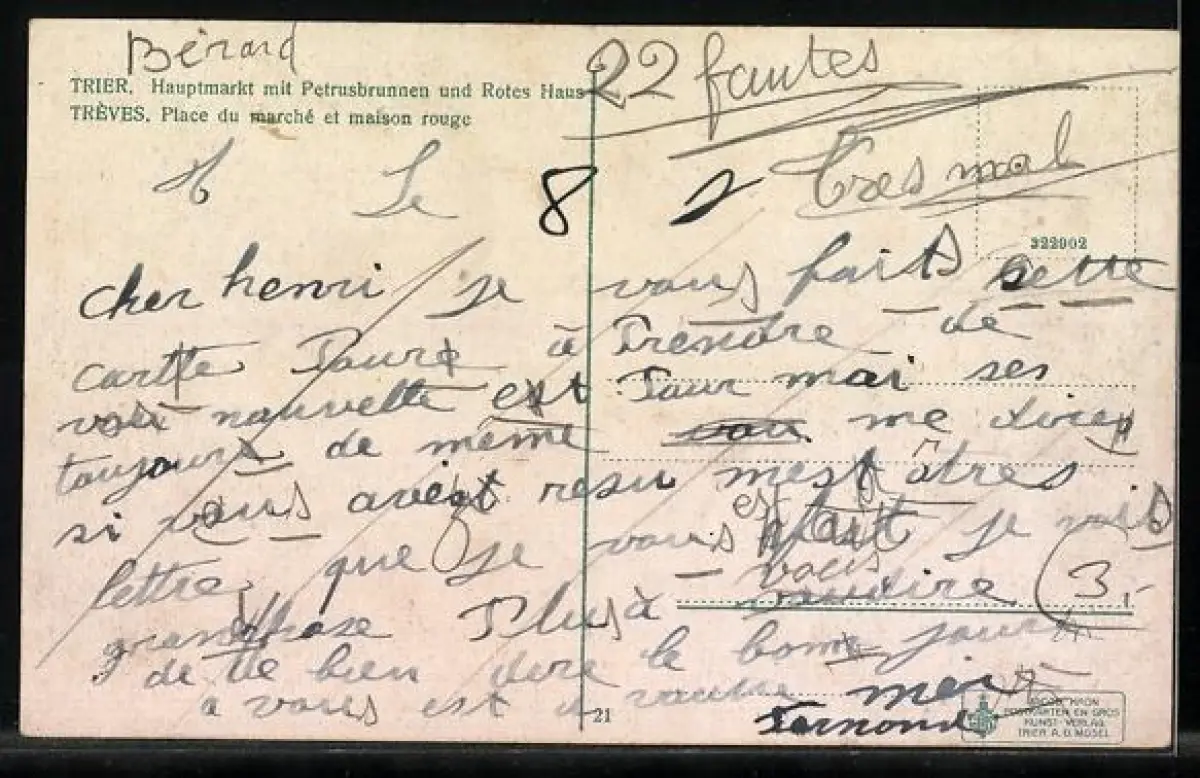 Bérard
22 fautes
TRIER. Hauptmarkt mit Petrusbrunnen und Rotes Haus
TRÈVES. Place du marché et maison rouge
Le 8
Tres mal
322902
cher henri je vous faits cette
cartte Pour à Prendre de
vos nouvelle est Pour moi ses
toujours de même me direz
si vous avest resu mest âtres
lettre que je vous est fait je vois
vous
grandchose Plus à vaudire
3.-
de te bien dire le bome jour
à vous est à vautre mei
Fernond
21
POSTKARTEN EN GROS
KUNST-VERLAG
TRIER A.D. MOSEL